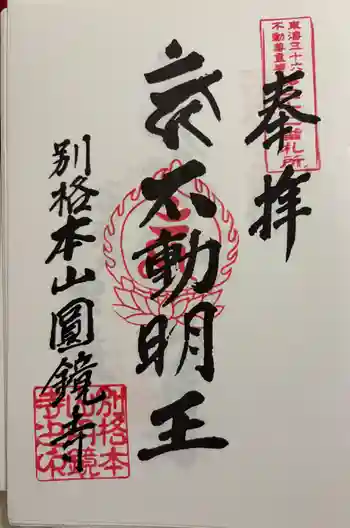 奉拝
不動明王
別格本山圓鏡寺
東海三十六
不動尊霊場
札所
別格本
山圓鏡